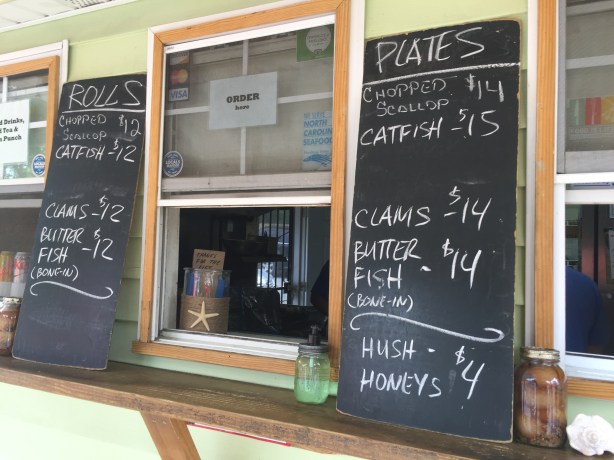 ROLLS
CHOPPED
SCALLOP $12
CATFISH - $12
CLAMS - $12
BUTTER
FISH - $12
(BONE-IN)
Drinks,
Tea &
Punch
VISA
ORDER
here
NORTH
CAROLINA
SEAFOOD
PLATES
CHOPPED $14
SCALLOP
CATFISH - $15
CLAMS - $14
BUTTER
FISH - $14
(BONE-IN)
HUSH -
HONEYS $4